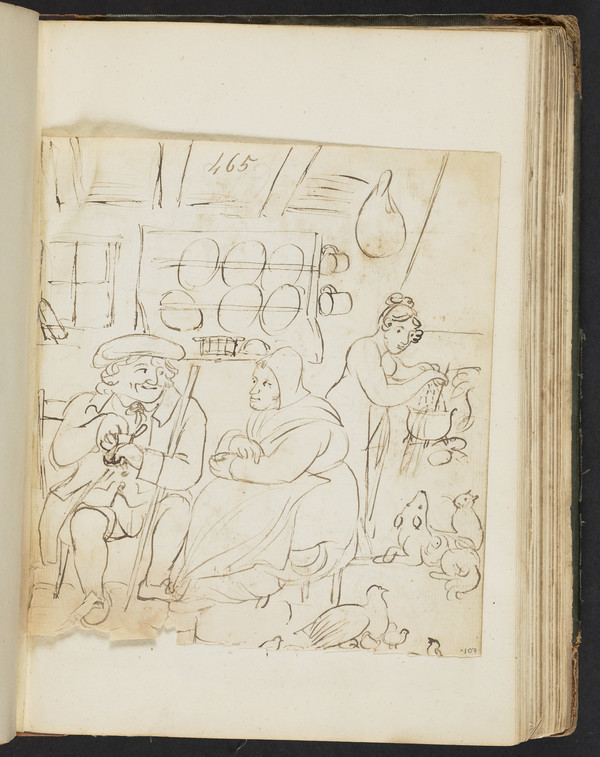 465
107